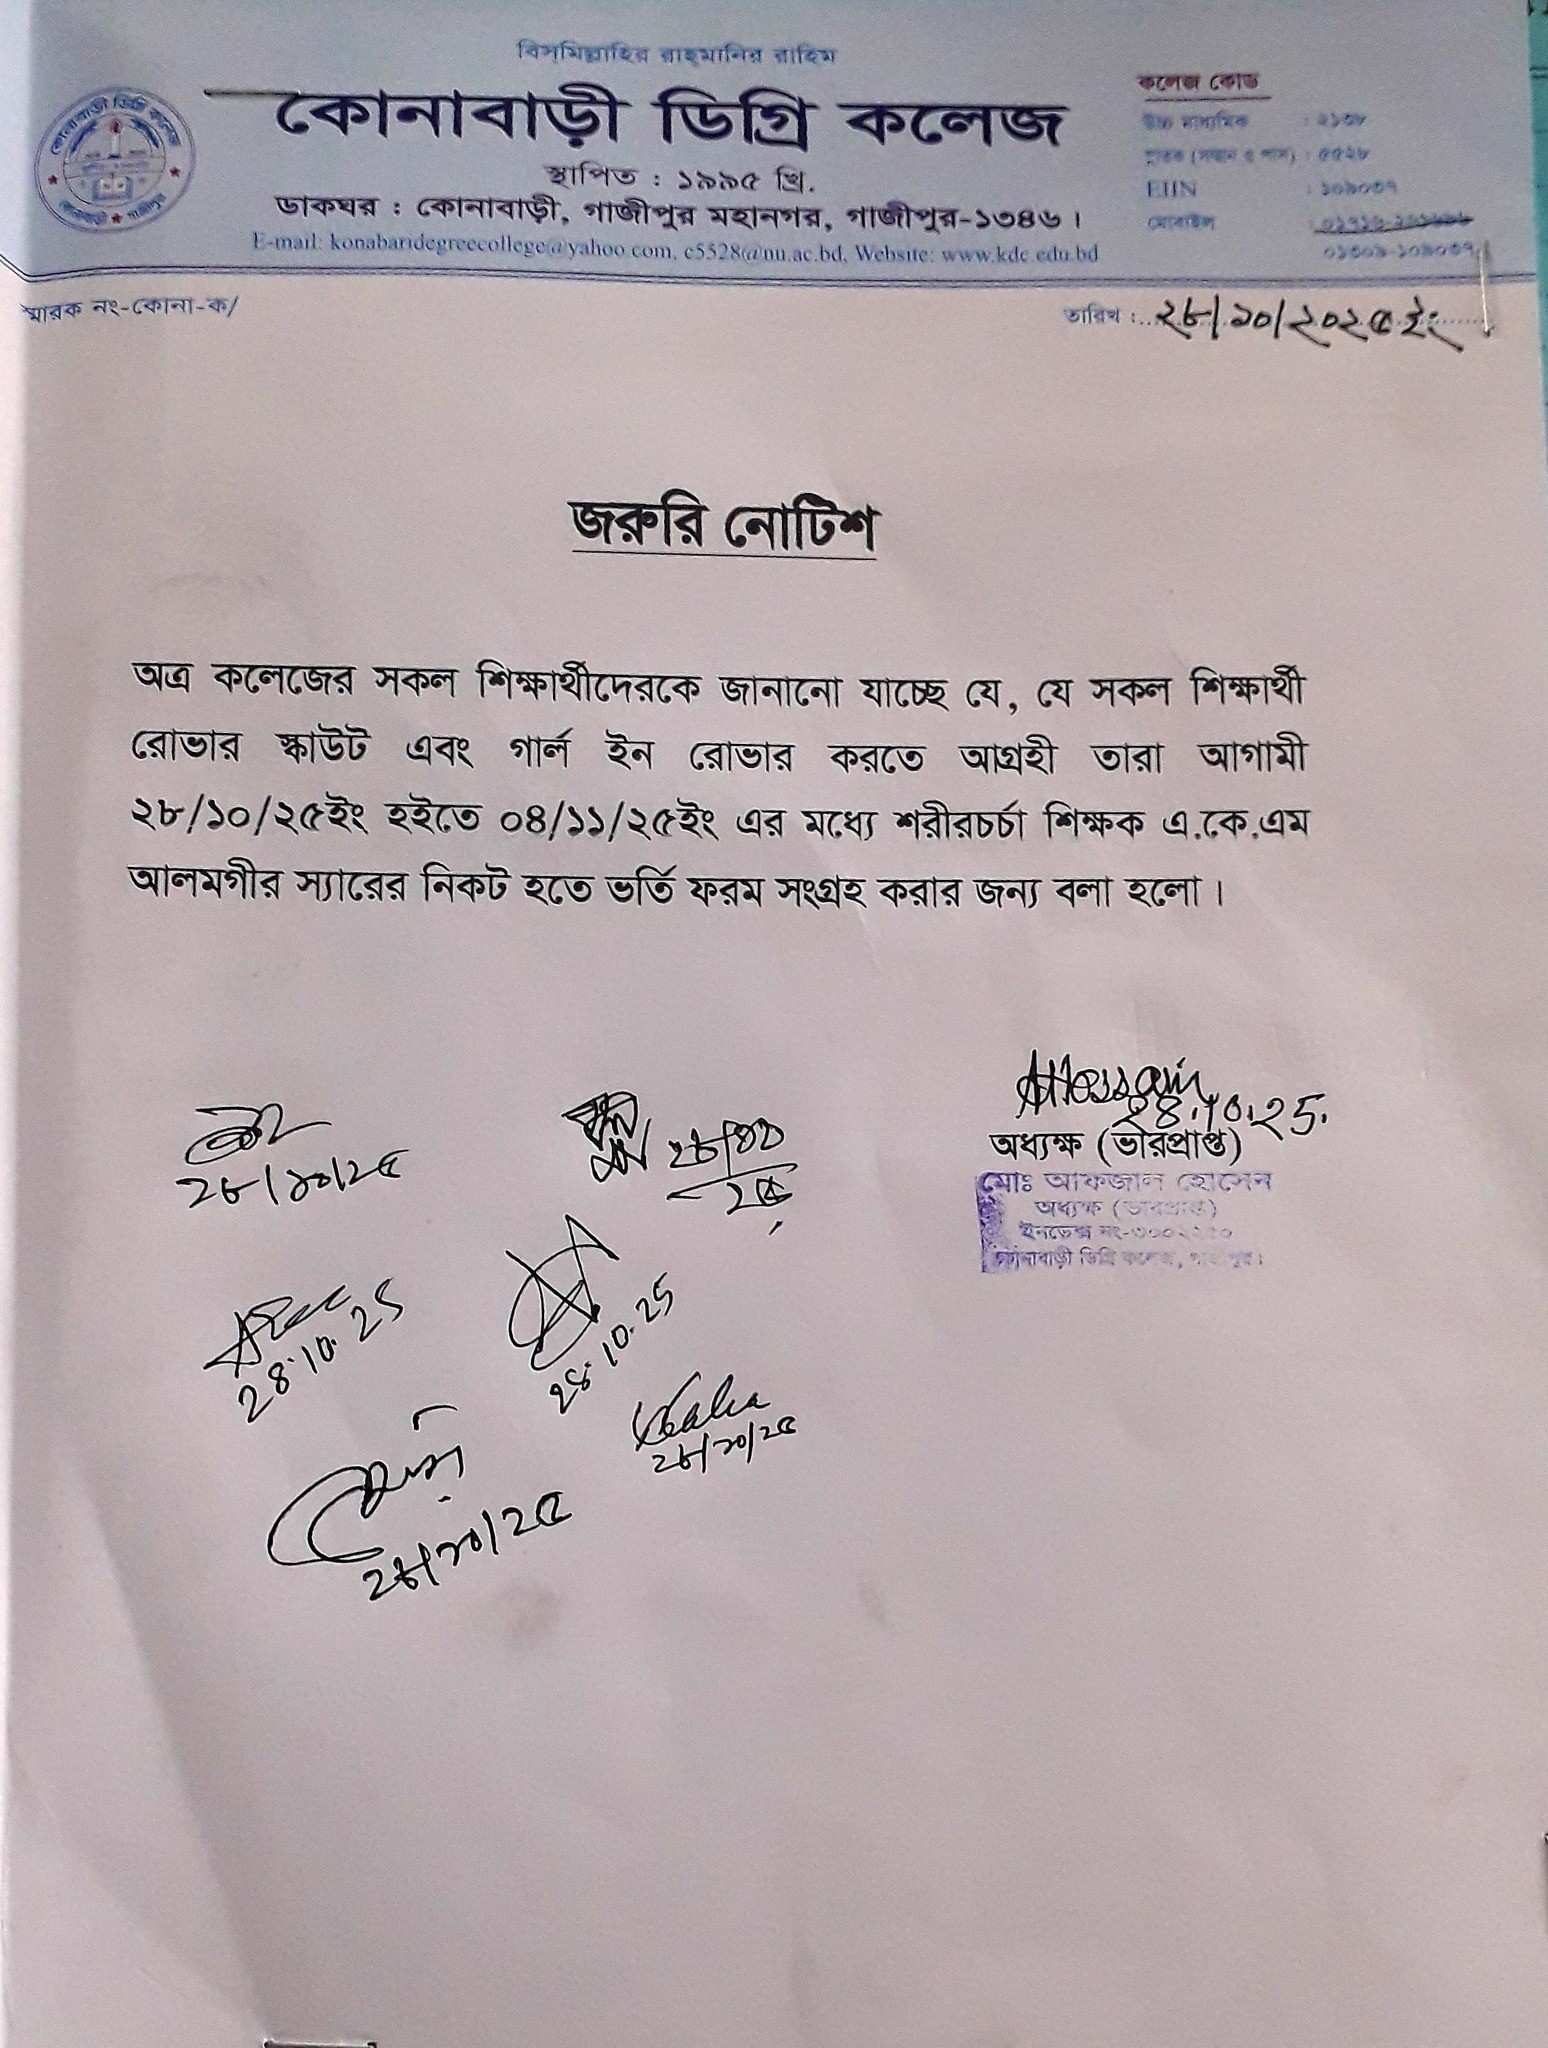 বিস্‌মিল্লাহির রাহ্‌মানির রাহিম
কোনাবাড়ী ডিগ্রি কলেজ
স্থাপিত : ১৯৯৫ খ্রি.
ডাকঘর : কোনাবাড়ী, গাজীপুর মহানগর, গাজীপুর-১৩৪৬।
E-mail: konabaridegreecollege@yahoo.com, c5528@nu.ac.bd, Website: www.kdc.edu.bd
কলেজ কোড
উচ্চ মাধ্যমিক : ২১৩৮
স্নাতক (সম্মান ও পাস) : ৫৫২৮
EIIN : ১০৯০৩৭
মোবাইল :
০১৩০৯-১০৯০৩৭
স্মারক নং-কোনা-ক/
তারিখ : ২৮/১০/২০২৫ ইং
জরুরি নোটিশ
অত্র কলেজের সকল শিক্ষার্থীদেরকে জানানো যাচ্ছে যে, যে সকল শিক্ষার্থী
রোভার স্কাউট এবং গার্ল ইন রোভার করতে আগ্রহী তারা আগামী
২৮/১০/২৫ইং হইতে ০৪/১১/২৫ইং এর মধ্যে শরীরচর্চা শিক্ষক এ.কে.এম
আলমগীর স্যারের নিকট হতে ভর্তি ফরম সংগ্রহ করার জন্য বলা হলো।
AHossain
28.10.25.
অধ্যক্ষ (ভারপ্রাপ্ত)
মোঃ আফজাল হোসেন
অধ্যক্ষ (ভারপ্রাপ্ত)
ইনডেক্স নং-
কোনাবাড়ী ডিগ্রি কলেজ, গাজীপুর।
২৮/১০/২৫
২৮/১০
২৫
28.10.25
28.10.25
২৮/১০/২৫
২৮/১০/২৫